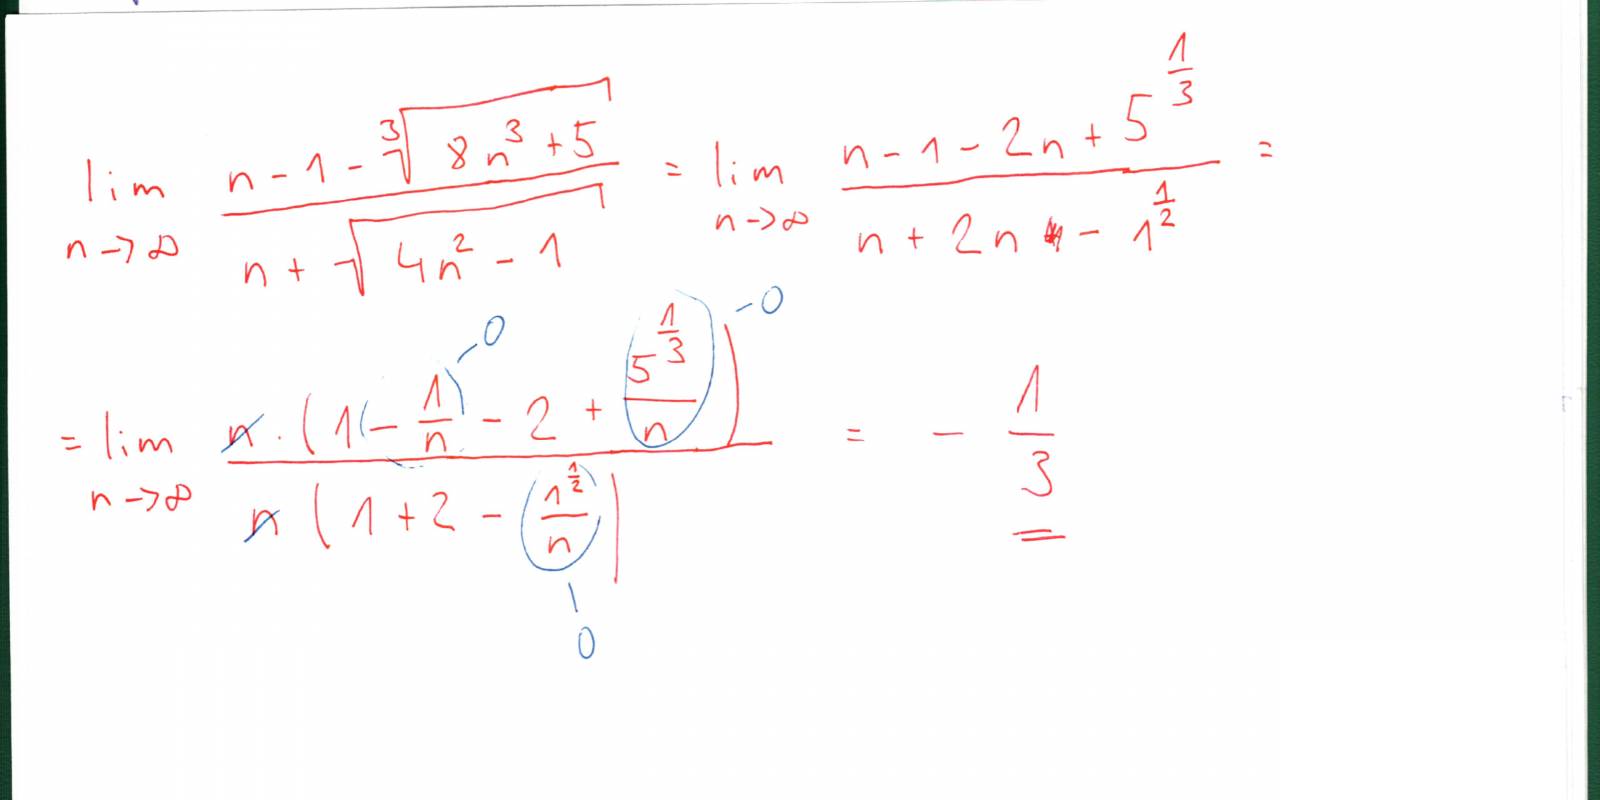 lim n→∞ (n - 1 - ∛(8n³ + 5)) / (n + √(4n² - 1)) = lim n→∞ (n - 1 - 2n + 5^(1/3)) / (n + 2n - 1^(1/2)) =
= lim n→∞ (n · (1 (- 1/n) - 2 + 5^(1/3)/n)) / (n (1 + 2 - 1^(1/2)/n)) = - 1/3
- 0
- 0
0